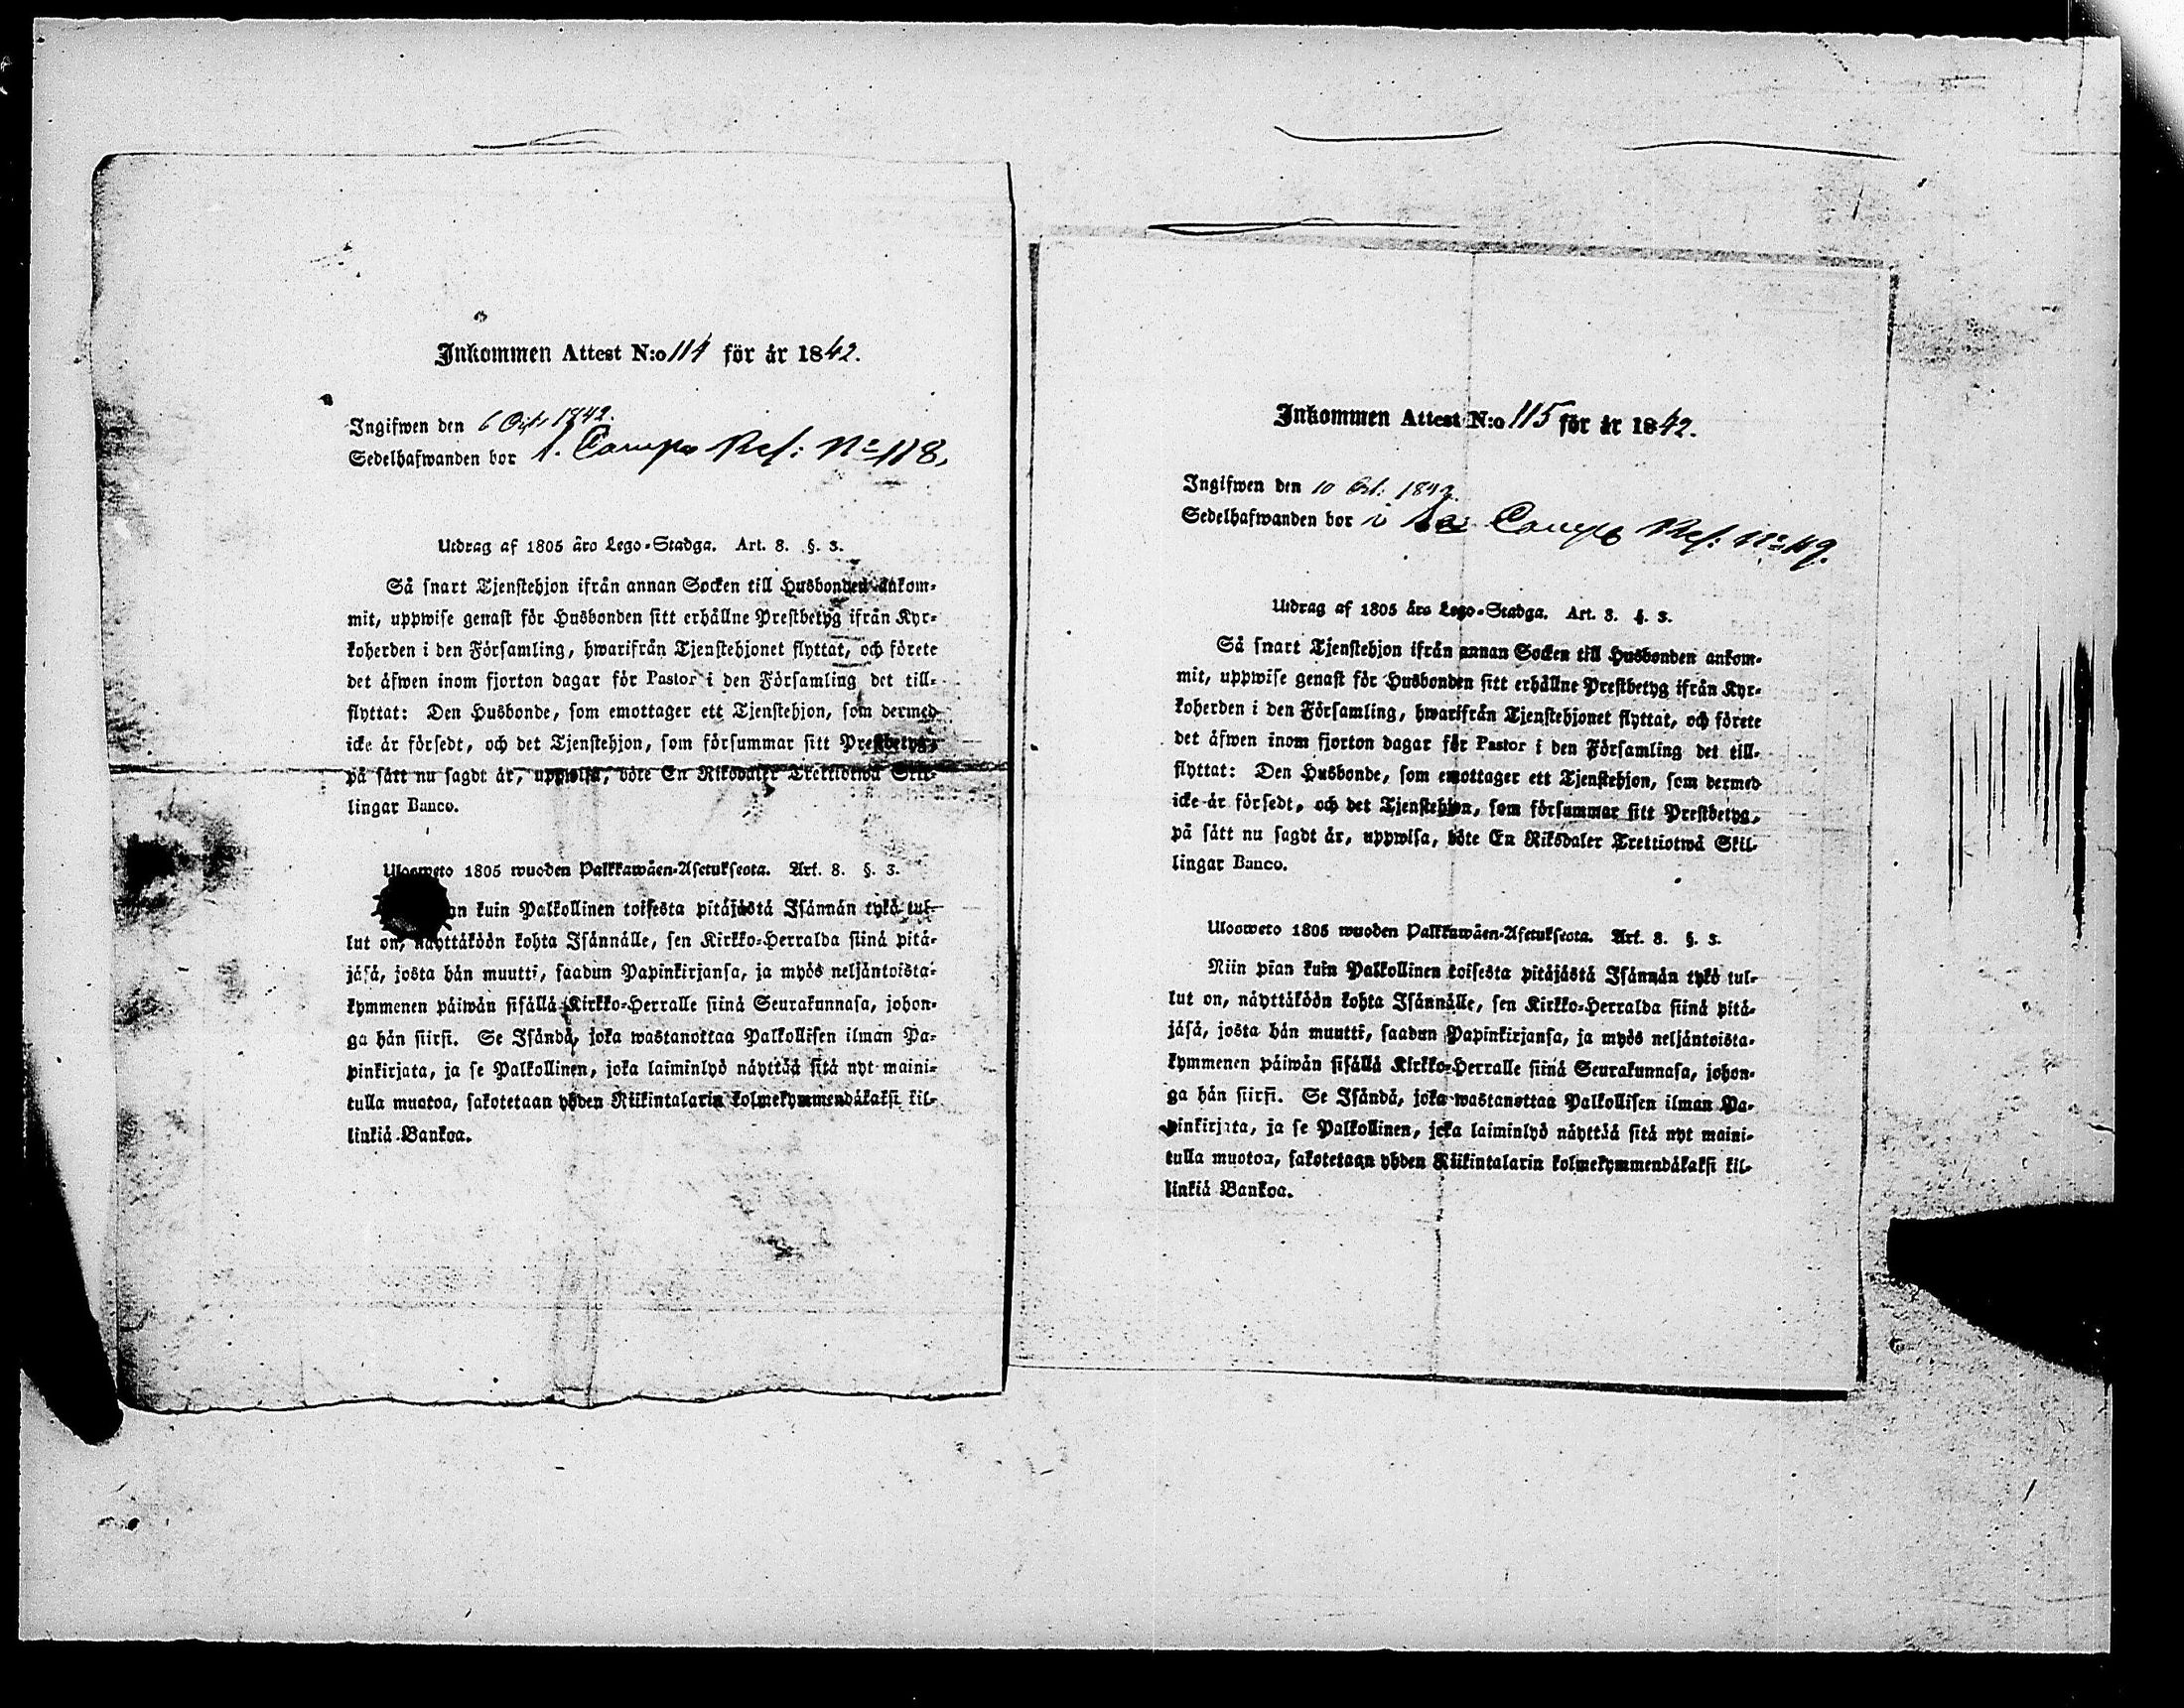 Inkommen Attest N:o 114 för år 1842.
Ingifwen den 6 Oct: 1842.
Sedelhafwanden bor 1. Camps Ref: No 118.
Utdrag af 1805 års Lego-Stadga. Art. 8. §. 3.
Så snart Tjenstehjon ifrån annan Socken till Husbonden ankom-
mit, uppwise genast för Husbonden sitt erhållne Prestbetyg ifrån Kyr-
koherden i den Församling, hwarifrån Tjenstehjonet flyttat, och förete
det äfwen inom fjorton dagar för Pastor i den Församling det till-
flyttat: Den Husbonde, som emottager ett Tjenstehjon, som dermed
icke är försedt, och det Tjenstehjon, som försummar sitt Prestbetyg,
på sätt nu sagdt är, uppwisa, böte En Riksdaler Trettiotwå Skil-
lingar Banco.
Ulosweto 1805 wuoden Palkkawäen-Asetuksesta. Art. 8. §. 3.
kuin Palkollinen toisesta pitäjästä Isännän tykö tul-
lut on, näyttäköön kohta Isännälle, sen Kirkko-Herralda siinä pitä-
jäsä, josta hän muutti, saadun Papinkirjansa, ja myös neljäntoista-
kymmenen päiwän sisällä Kirkko-Herralle siinä Seurakunnasa, johon-
ga hän siirsi. Se Isändä, joka wastanottaa Palkollisen ilman Pa-
pinkirjata, ja se Palkollinen, joka laiminlyö näyttää sitä nyt maini-
tulla muotoa, sakotetaan yhden Riikintalarin kolmekymmendäkaksi kil-
linkiä Bankoa.
Inkommen Attest N:o 115 för år 1842.
Ingifwen den 10 Oct: 1842.
Sedelhafwanden bor i Camps Ref: No 49.
Utdrag af 1805 års Lego-Stadga. Art. 8. §. 3.
Så snart Tjenstehjon ifrån annan Socken till Husbonden ankom-
mit, uppwise genast för Husbonden sitt erhållne Prestbetyg ifrån Kyr-
koherden i den Församling, hwarifrån Tjenstehjonet flyttat, och förete
det äfwen inom fjorton dagar för Pastor i den Församling det till-
flyttat: Den Husbonde, som emottager ett Tjenstehjon, som dermed
icke är försedt, och det Tjenstehjon, som försummar sitt Prestbetyg,
på sätt nu sagdt är, uppwisa, böte En Riksdaler Trettiotwå Skil-
lingar Banco.
Ulosweto 1805 wuoden Palkkawäen-Asetuksesta. Art. 8. §. 3.
Niin pian kuin Palkollinen toisesta pitäjästä Isännän tykö tul-
lut on, näyttäköön kohta Isännälle, sen Kirkko-Herralda siinä pitä-
jäsä, josta hän muutti, saadun Papinkirjansa, ja myös neljäntoista-
kymmenen päiwän sisällä Kirkko-Herralle siinä Seurakunnasa, johon-
ga hän siirsi. Se Isändä, joka wastanottaa Palkollisen ilman Pa-
pinkirjata, ja se Palkollinen, joka laiminlyö näyttää sitä nyt maini-
tulla muotoa, sakotetaan yhden Riikintalarin kolmekymmendäkaksi kil-
linkiä Bankoa.